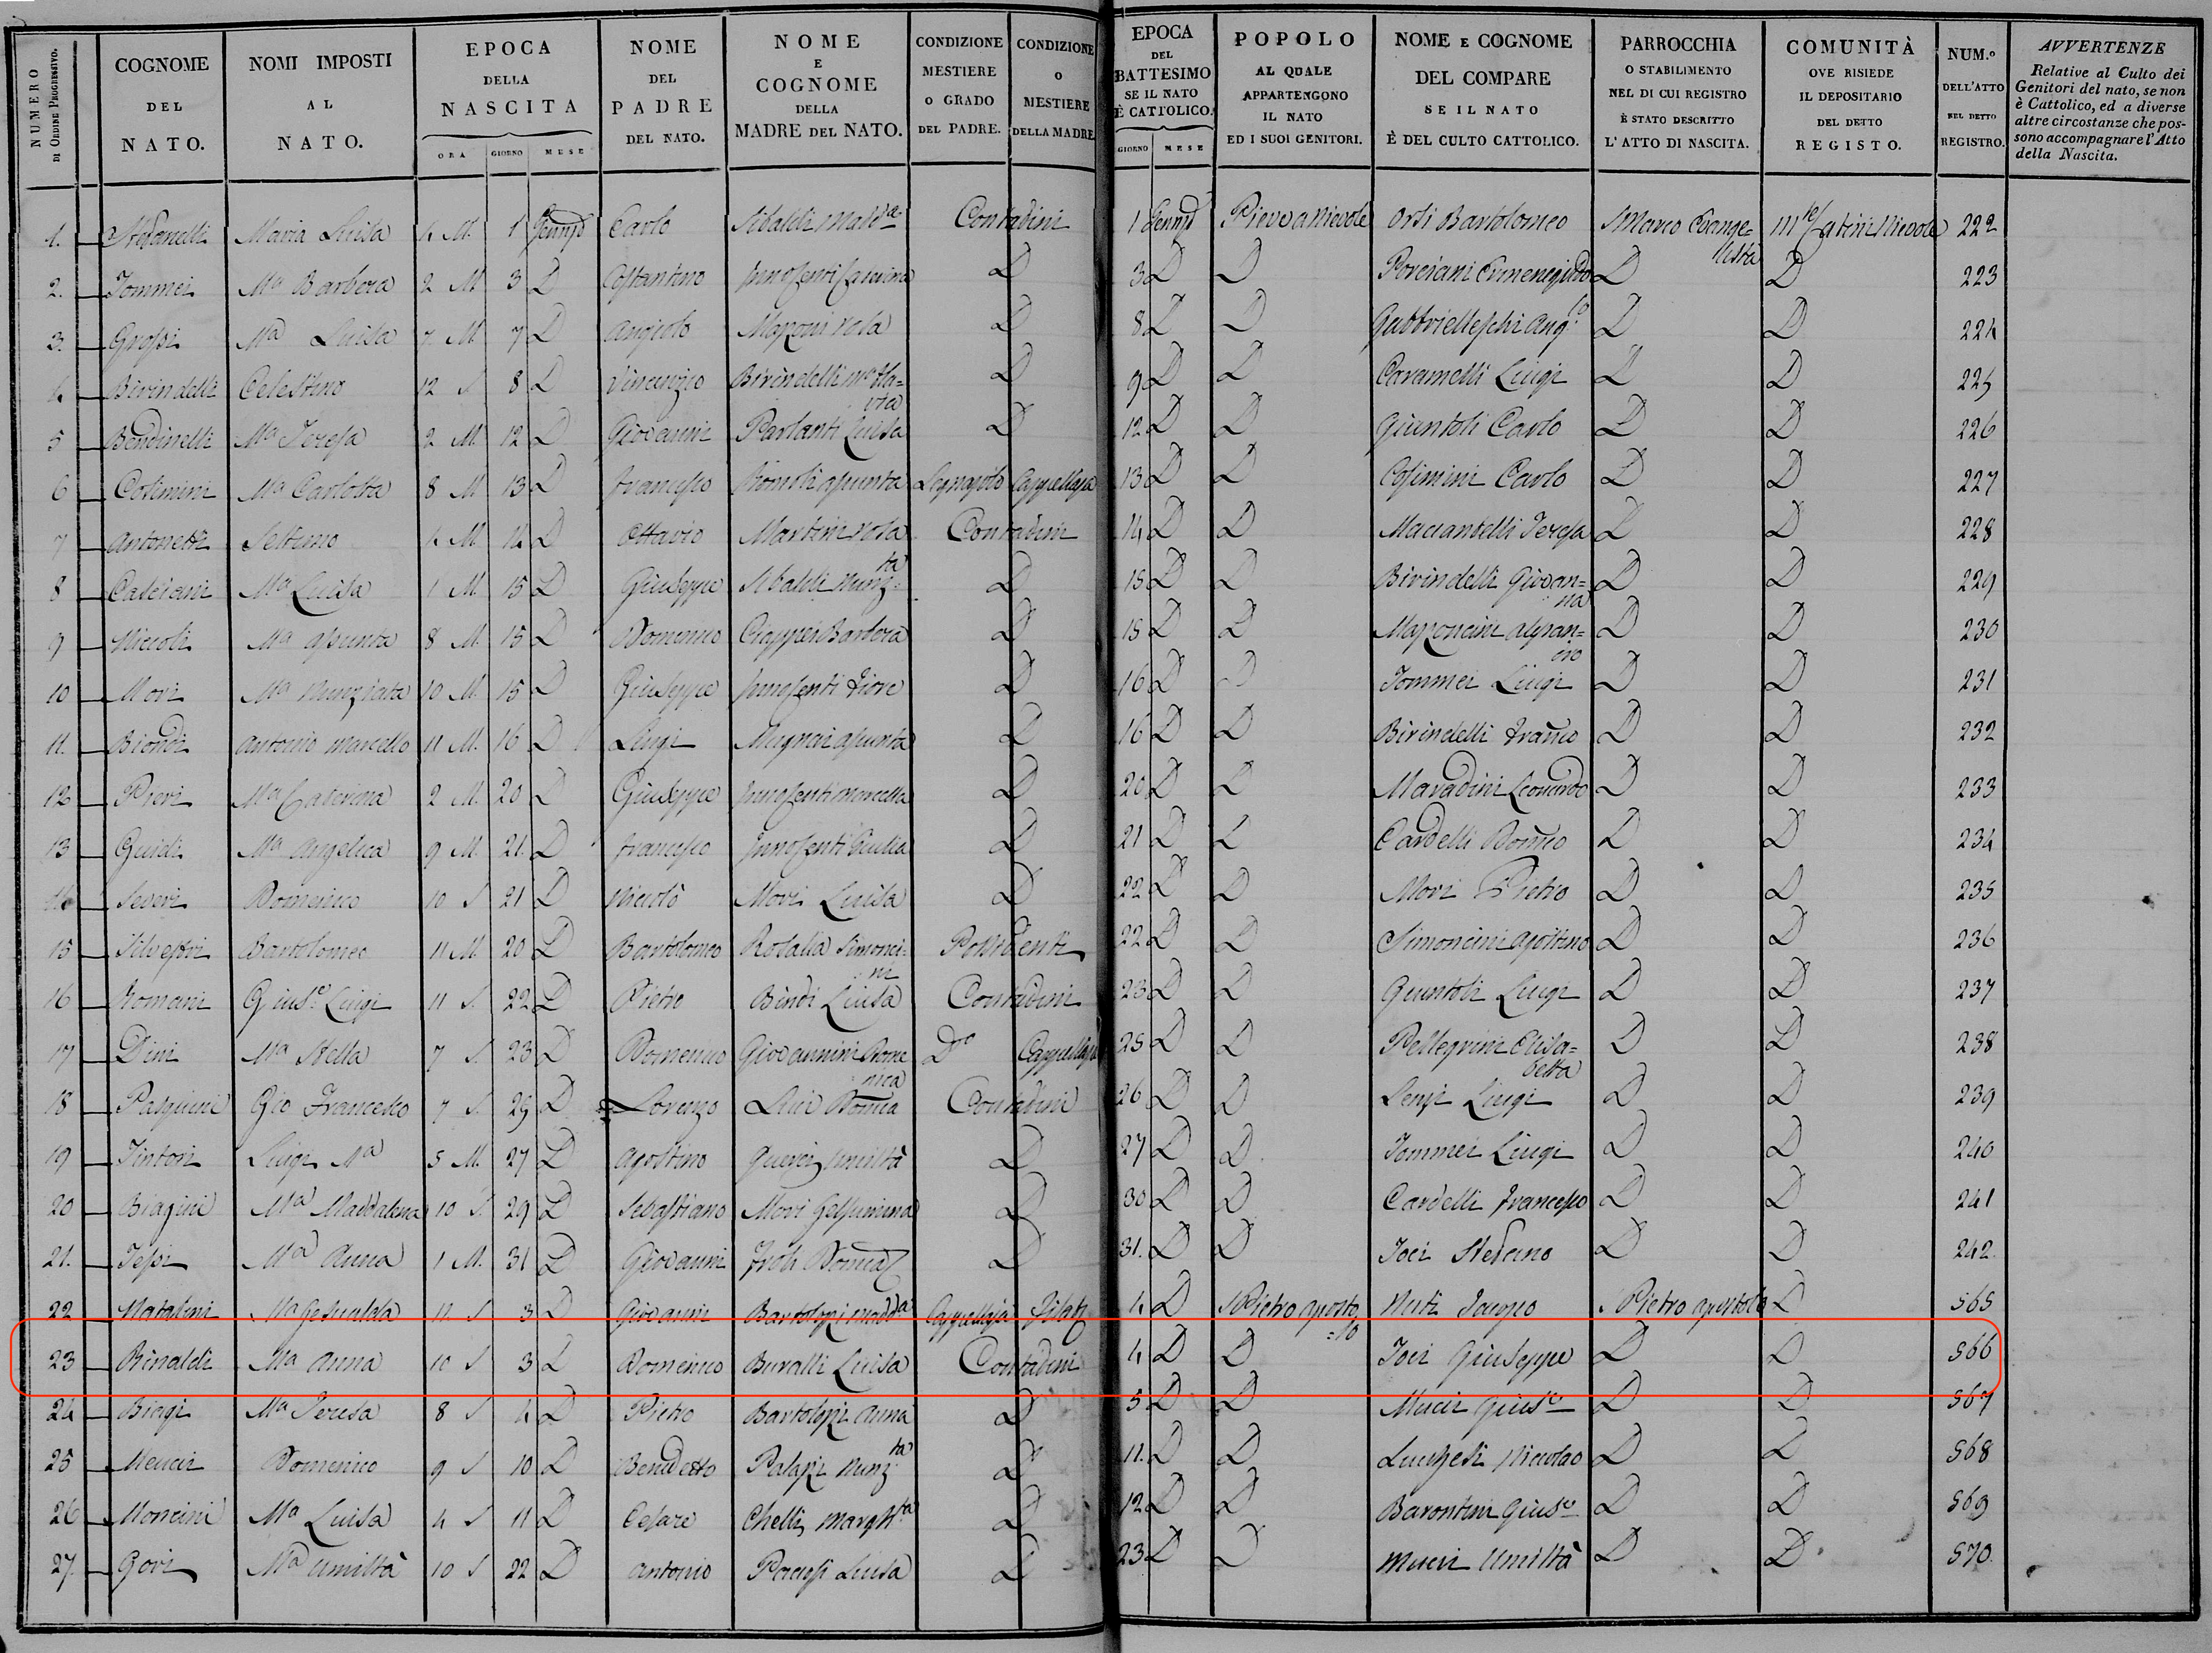 NUMERO DI ORDINE PROGRESSIVO.
COGNOME DEL NATO.
NOMI IMPOSTI AL NATO.
EPOCA DELLA NASCITA
ORA GIORNO MESE
NOME DEL PADRE DEL NATO.
NOME E COGNOME DELLA MADRE DEL NATO.
CONDIZIONE MESTIERE O GRADO DEL PADRE.
CONDIZIONE O MESTIERE DELLA MADRE.
EPOCA DEL BATTESIMO SE IL NATO È CATTOLICO.
GIORNO MESE
POPOLO AL QUALE APPARTENGONO IL NATO ED I SUOI GENITORI.
NOME E COGNOME DEL COMPARE SE IL NATO È DEL CULTO CATTOLICO.
PARROCCHIA O STABILIMENTO NEL DI CUI REGISTRO È STATO DESCRITTO L'ATTO DI NASCITA.
COMUNITÀ OVE RISIEDE IL DEPOSITARIO DEL DETTO REGISTO.
NUM.º DELL'ATTO NEL DETTO REGISTRO.
AVVERTENZE
Relative al Culto dei Genitori del nato, se non è Cattolico, ed a diverse altre circostanze che possono accompagnare l'Atto della Nascita.
1. Stefanelli Maria Luisa 4 M. 1 Genn Carlo Sibaldi Madda Contadini 1 Genn Pieve a Nievole Orsi Bartolomeo S Marco Evange=lista Mte/Catini Nievole 222
2. Tommei Ma Barbera 2 M 3 D Costantino Innocenti 3 D D Porciani Ermenegildo D D 223
3. Grossi Ma Luisa 7 M 7 D Angiolo Mazoni Rosa D 8 D D Gabbrielleschi Ang.lo D D 224
4 Birindelli Celestino 12 S 8 D Vincenzio Birindelli D 9 D D Caramelli Luigi D D 225
5 Bendinelli Ma Teresa 2 M 12 D Giovanni Parlanti Luisa D 12 D D Giuntoli Carlo D D 226
6 Cosimini Ma Carlotta 8 M 13 D Francesco Romoli Assunta Legnajolo Cappellaja 13 D D Cosimini Carlo D D 227
7 Antonetti Settimo 4 M. 14 D Ottavio Martini Rosa Contadini 14 D D Teresa D D 228
8 Calciani Ma Luisa 1 M. 15 D Giuseppe Sibaldi Nunz=ta D 15 D D Birindelli Giovan=na D D 229
9 Niccoli Ma Assunta 8 M. 15 D Domenico Barbera D 15 D D Mazoncini D D 230
10 Mori Ma Nunziata 10 M. 15 D Giuseppe Innocenti Fiore D 16 D D Tommei Luigi D D 231
11. Biondi Antonio Marcello 11 M. 16 D Luigi Mugnai Assunta D 16 D D Birindelli Franco D D 232
12 Pieri Ma Caterina 2 M. 20 D Giuseppe Innocenti Marcella D 20 D D Maradini Leonardo D D 233
13 Guidi Ma Angelica 9 M. 21. D Francesco Innocenti Giulia D 21 D D Cardelli Domco D D 234
14 Severi Domenico 10 S 21 D Niccolò Mori Luisa D 22 D D Mori Pietro D D 235
15 Silvestri Bartolomeo 11 M. 20 D Bartolomeo Rosalia Simonci=ni Possidenti 22 D D Simoncini Agostino D D 236
16 Romani Giuse Luigi 11 S. 22 D Pietro Bindi Luisa Contadini 23 D D Giuntoli Luigi D D 237
17 Dini Ma Stella 7 S. 23 D Domenico Giovannini Dome=nica Do Cappellaja 25 D D Pellegrini Elisa=betta D D 238
18 Pasquini Gio Francesco 7 S. 25 D Lorenzo Lici Domca Contadini 26 D D Lenzi Luigi D D 239
19 Tintori Luigi Ma 5 M. 27 D Agostino Querci Umiltà D 27 D D Tommei Luigi D D 240
20 Biagini Ma Maddalena 10 S. 29 D Sebastiano Mori Gelsumina D 30 D D Cardelli Francesco D D 241
21. Tessi Ma Anna 1 M. 31 D Giovanni Froli Domca D 31. D D Toci Stefano D D 242
22 Natalini Ma Gesualda 11. S 3 D Giovanni Bartolozi Madda Cappellaja 4 D S Pietro Aposto=lo Nuti Jacopo S Pietro Apostolo D 565
23 Rinaldi Ma Anna 10 S 3 D Domenico Buralli Luisa Contadini 4 D D Toci Giuseppe D D 566
24 Biagi Ma Teresa 8 S 4 D Pietro Bartolozi Anna D 5 D D Giuse D D 567
25 Meucci Domenico 9 S 10 D Benedetto Palazi Nunzta D 11. D D Lucchesi Niccolao D D 568
26 Moncini Ma Luisa 4 S 11 D Cesare Chelli Marghta D 12 D D Barontini Giuse D D 569
27. Gori Ma Umiltà 10 S 22 D Antonio Luisa D 23 D D Umiltà D D 570